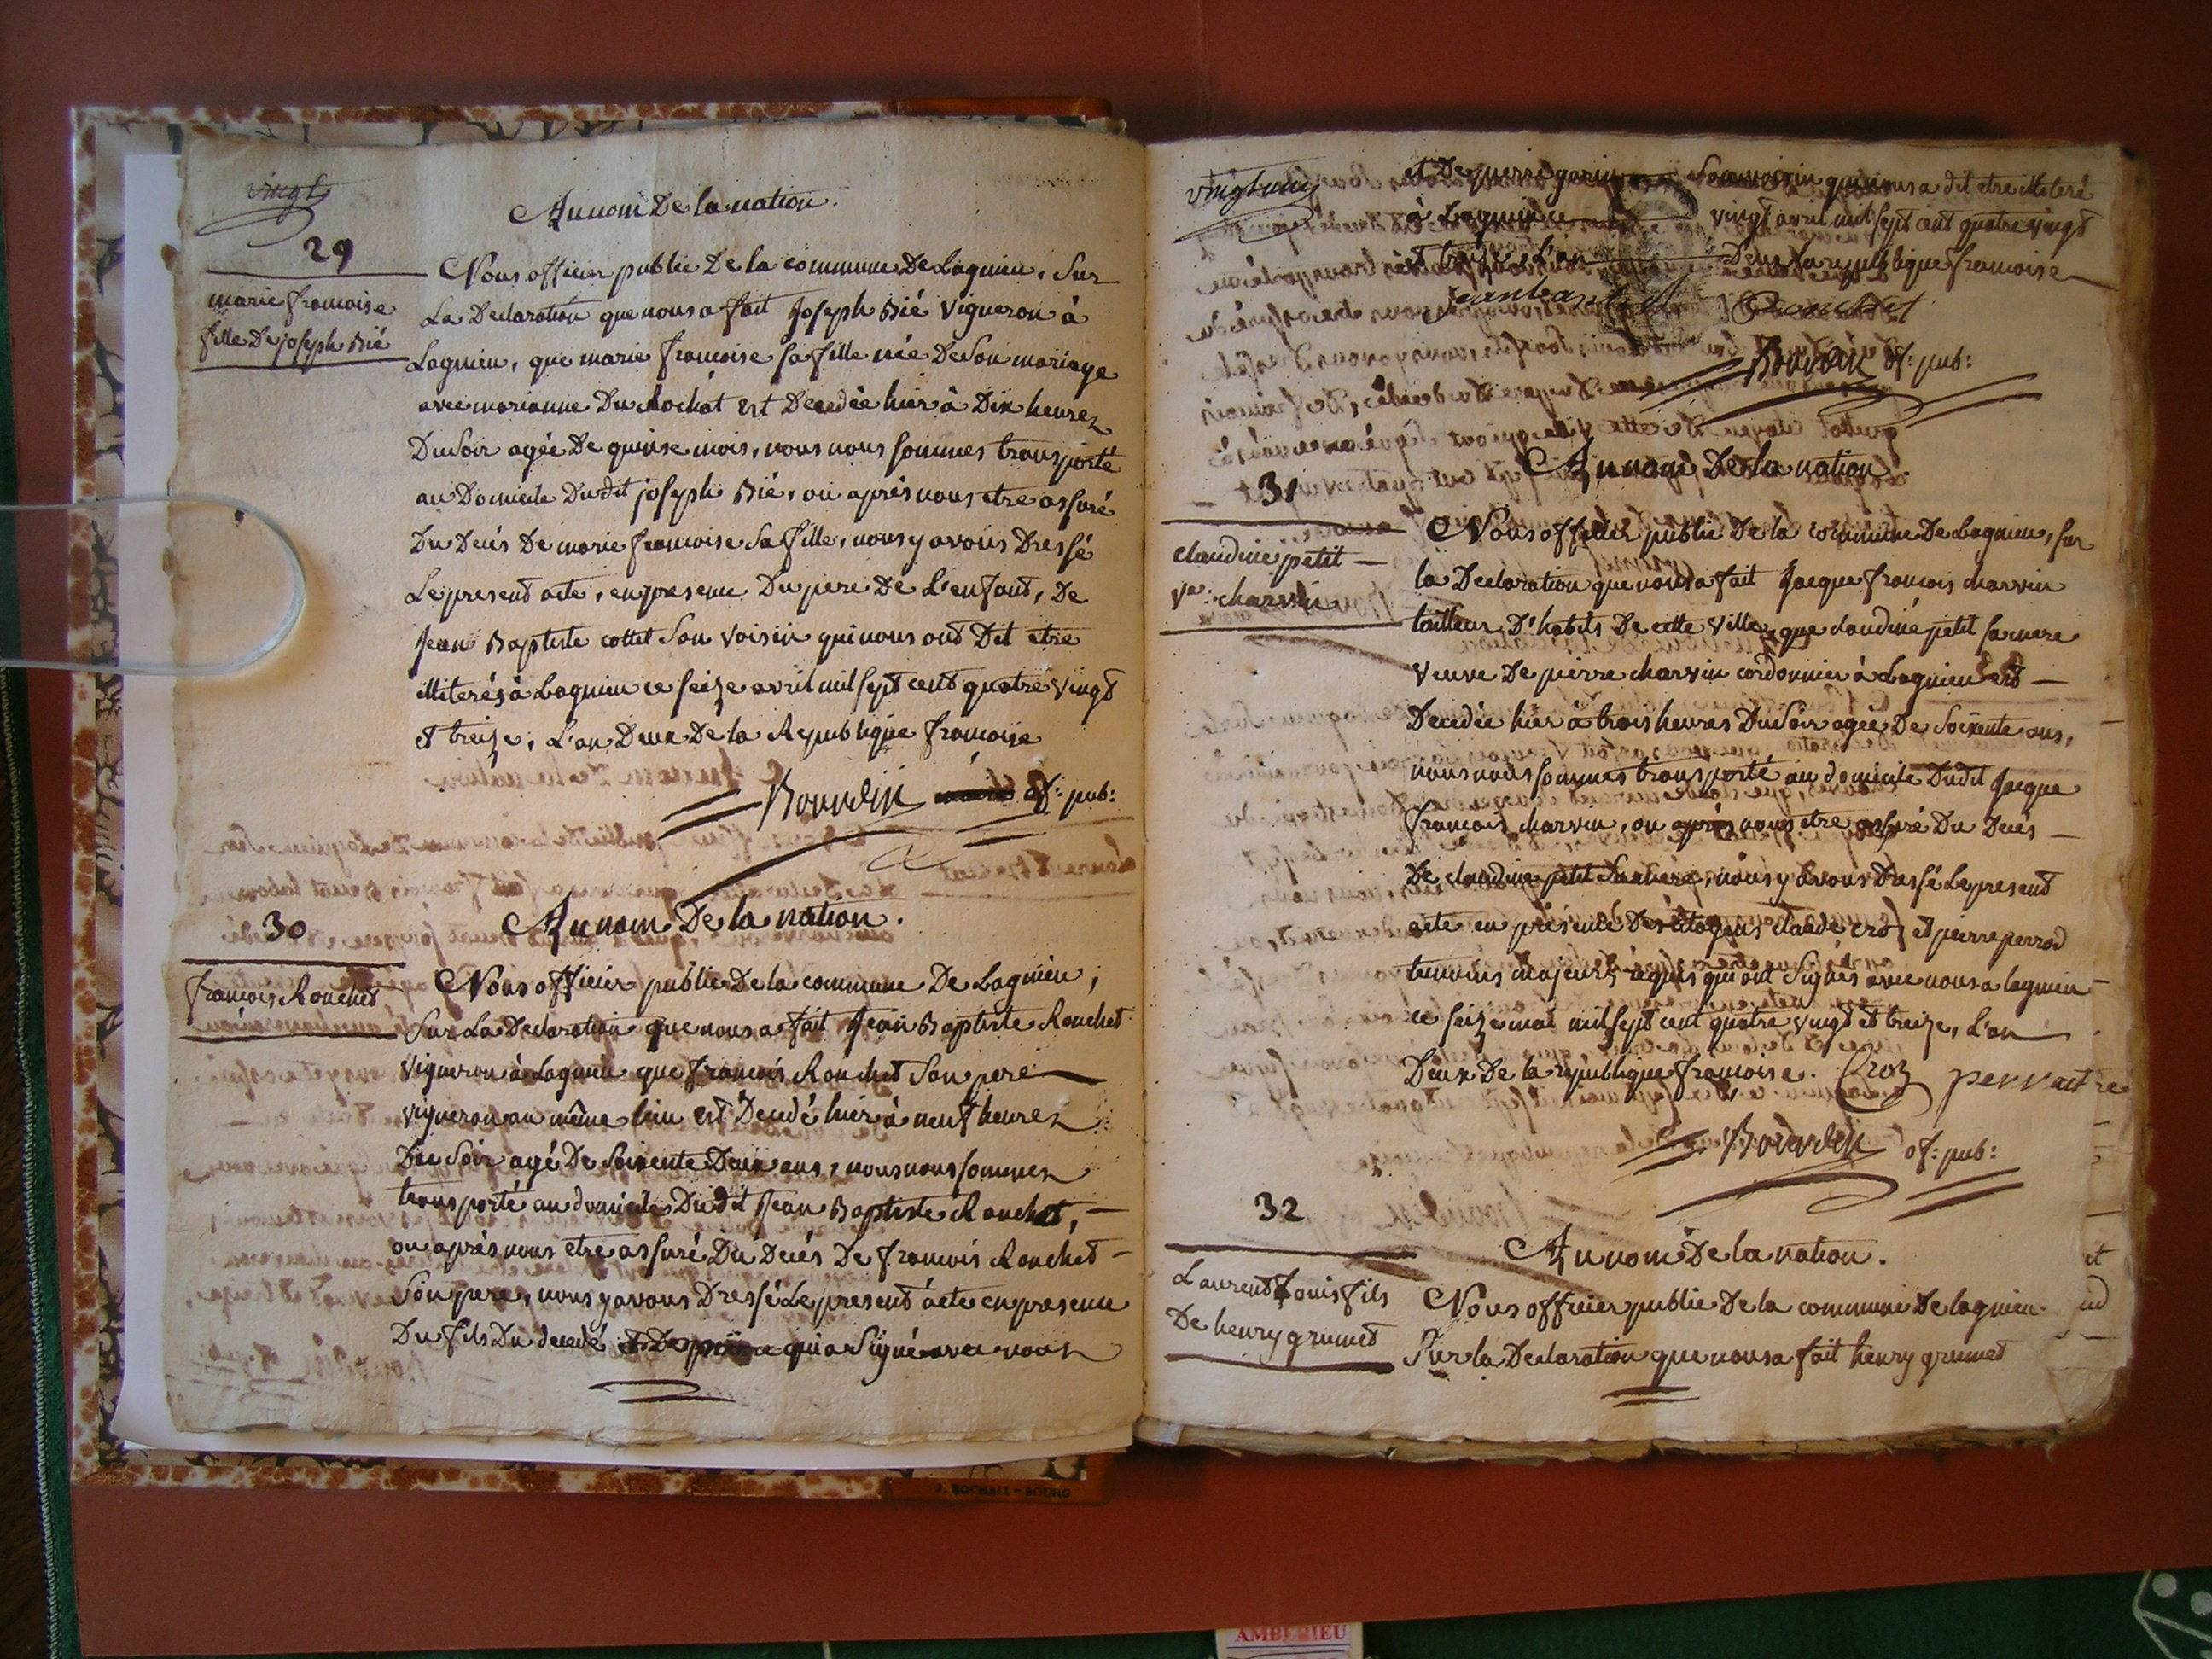 vingt
29
Au nom De la nation.
marie francoise
fille De joseph Bié
Nous officier public De la commune De Lagnieu, Sur
La Declaration que nous a fait Joseph Bié Vigneron à
Lagnieu, que marie francoise sa fille née De Son mariage
avec marianne Du Rochat est Decedée hier à Dix heures
Du Soir agée De quinse mois, nous nous sommes transporté
au Domicile Dudit joseph Bié, ou aprés nous etre assuré
Du Decés De marie francoise Sa fille, nous y avons Dressé
Le present acte, en presence Du pere De L'enfant, De
Jean Baptiste cottet Son Voisin qui nous ont Dit etre
illiterés à Lagnieu ce seize avril mil sept cent quatre vingt
et treize, L'an Deux De la Republique francoise
Bourdin of: pub:
30
Au nom De la nation.
francois Rouchet
Nous officier public De la commune De Lagnieu,
Sur La Declaration que nous a fait Jean Baptiste Rouchet
Vigneron à Lagnieu que francois Rouchet Son pere
vigneron au même lieu est Decedé hier à neuf heures
Du Soir agé De Soixente Deux ans, nous nous sommes
transporté au domicile Dudit Jean Baptiste Rouchet,
ou aprés nous etre assuré Du Decés De francois Rouchet
Son pere, nous y avons Dressé Le present acte en presence
Du fils Du decedé et De pierre qui a Signé avec nous
vingt un
et De pierre garin Son voisin qui nous a dit etre illiteré
à Lagnieu ce vingt avril mil sept cent quatre vingt
et treize, L'an Deux De la republique francoise
jean bap Rouchet
Bourdin of: pub:
31
Au nom De la nation.
claudine petit
Ve: charvin
Nous officier public De la commune De Lagnieu, sur
la Declaration que nous a fait Jacque francois charvin
tailleur D'habits De cette ville, que claudine petit sa mere
veuve De pierre charvin cordonnier à Lagnieu est
Decedée hier à trois heures Du Soir agée De Soixente ans,
nous nous sommes transporté au domicile Dudit Jacque
francois charvin, ou aprés nous etre assuré Du Decés
De claudine petit Sa mere, nous y avons Dressé Le present
acte en présence Des citoyens claude croz et pierre perrod
temoins majeurs requis qui ont Signés avec nous a lagnieu
ce seize mai mil sept cent quatre vingt et treize, L'an
Deux De la république francoise. Croz
Bourdin of: pub:
32
Au nom De la nation.
Laurent Louis fils
De henry grumet
Nous officier public De la commune De lagnieu
Sur la Declaration que nous a fait henry grumet
J. ROCHAIX - BOURG
AMBERIEU